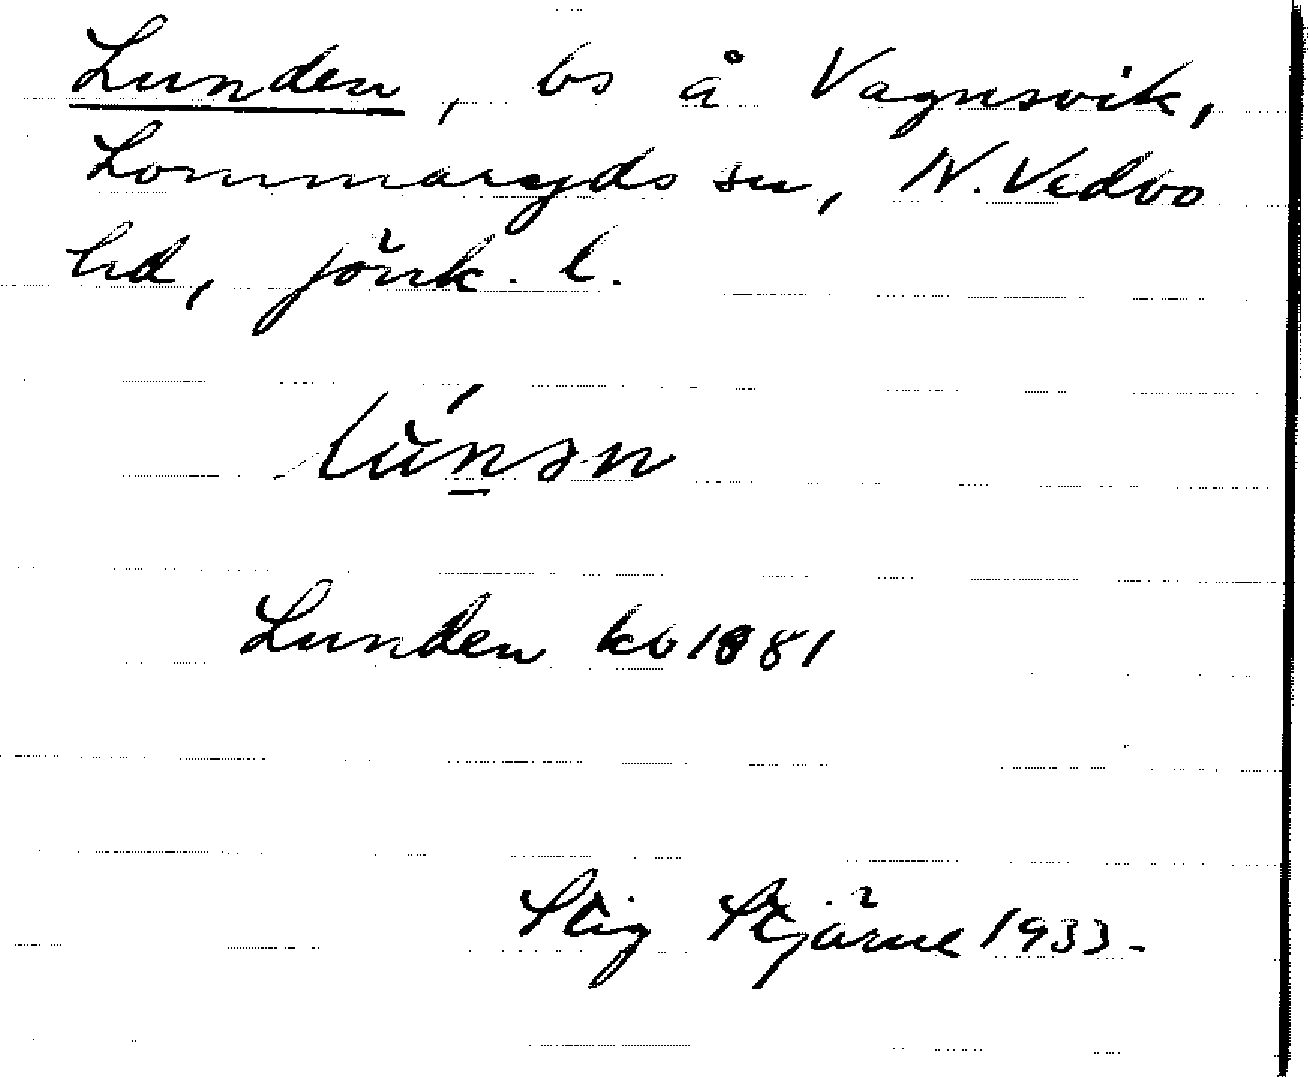 Lunden, bs å Vagnsvik,
Lommaryds sn, N. Vedbo
hd, Jönk. l.
Lunden kb 1881
Stig Stjärne 1933.